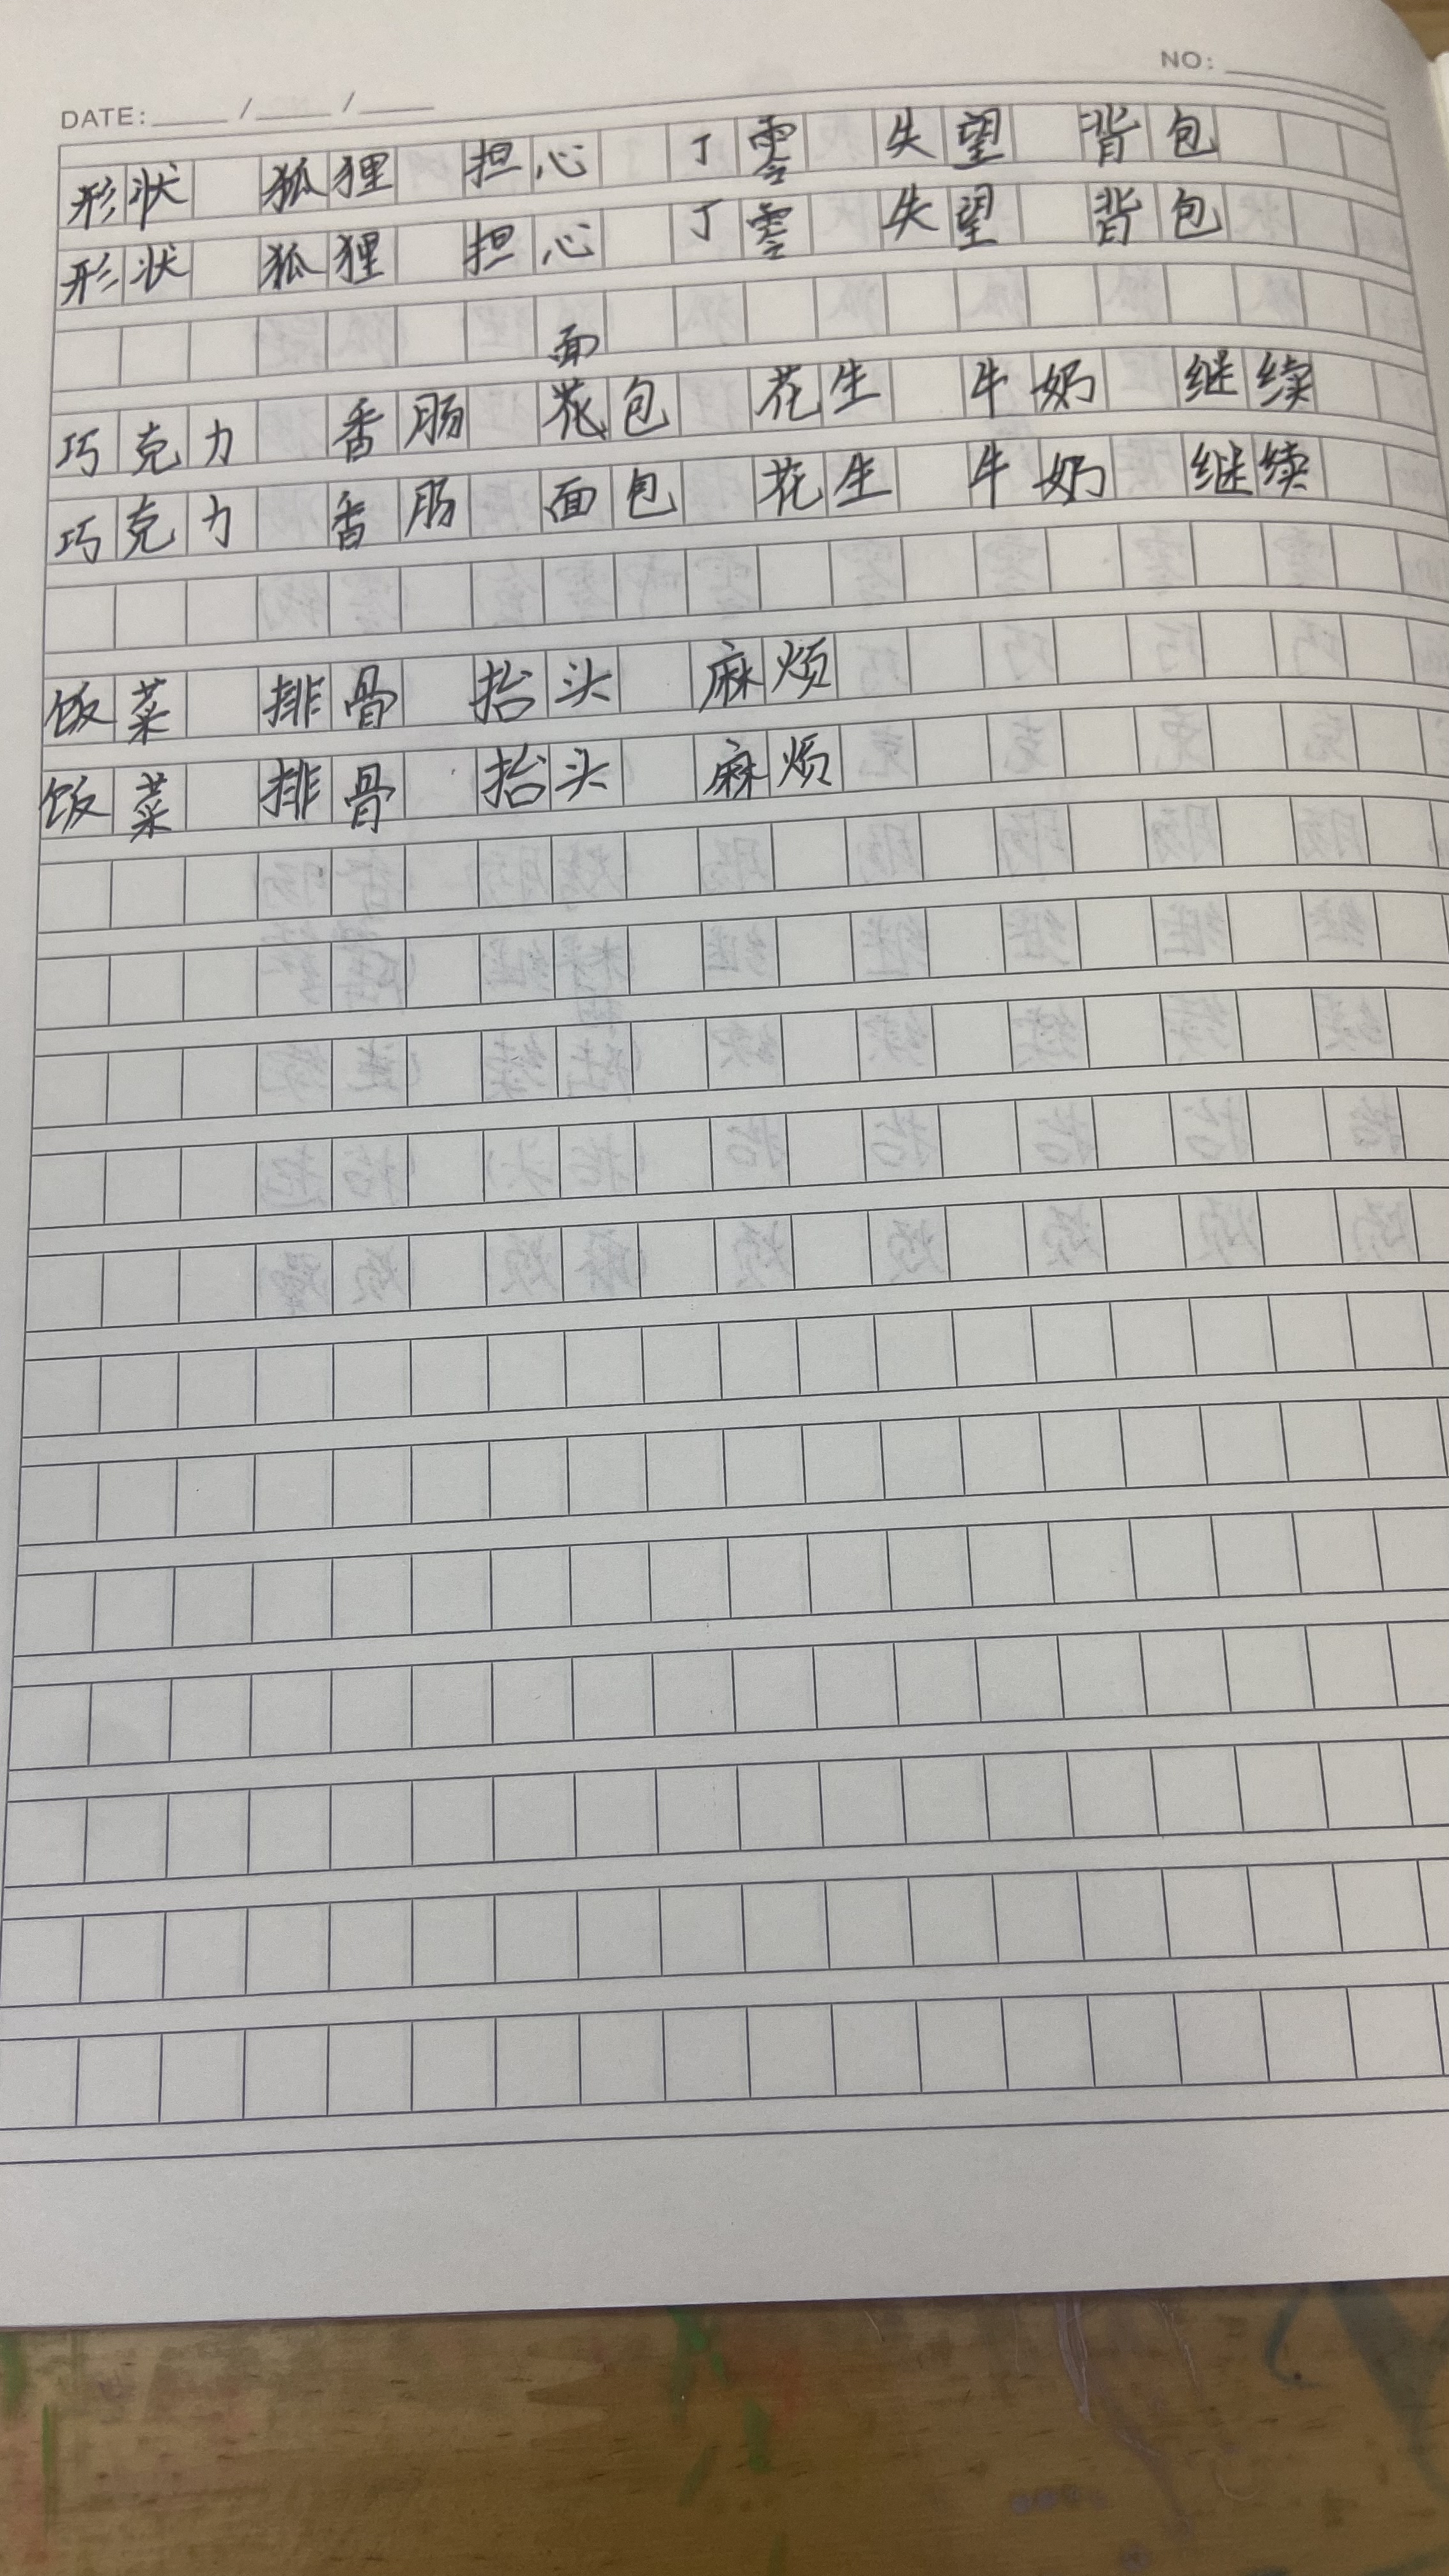 NO:
DATE: / /
形状 狐狸 担心 丁零 失望 背包
形状 狐狸 担心 丁零 失望 背包
面
巧克力 香肠 花包 花生 牛奶 继续
巧克力 香肠 面包 花生 牛奶 继续
饭菜 排骨 抬头 麻烦
饭菜 排骨 抬头 麻烦